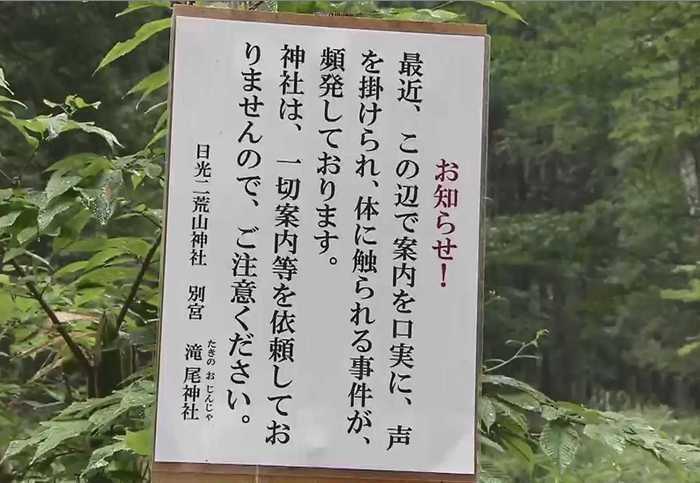 お知らせ！
最近、この辺で案内を口実に、声
を掛けられ、体に触られる事件が、
頻発しております。
神社は、一切案内等を依頼してお
りませんので、ご注意ください。
日光二荒山神社　別宮　滝尾神社
たきの お じんじゃ